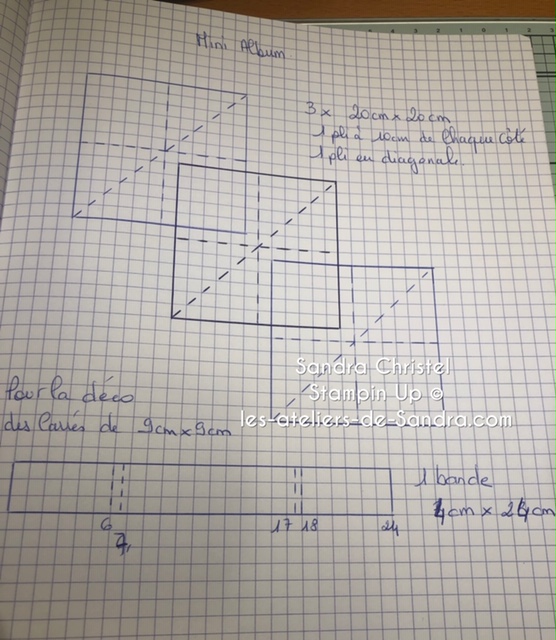 Mini Album
3x 20cm x 20cm
1 pli à 10cm de chaque côté
1 pli en diagonale.
Sandra Christel
Stampin Up ©
les-ateliers-de-Sandra.com
Pour la déco
des Carrés de 9cm x 9cm
1 bande
4cm x 24cm
6 7 17 18 24